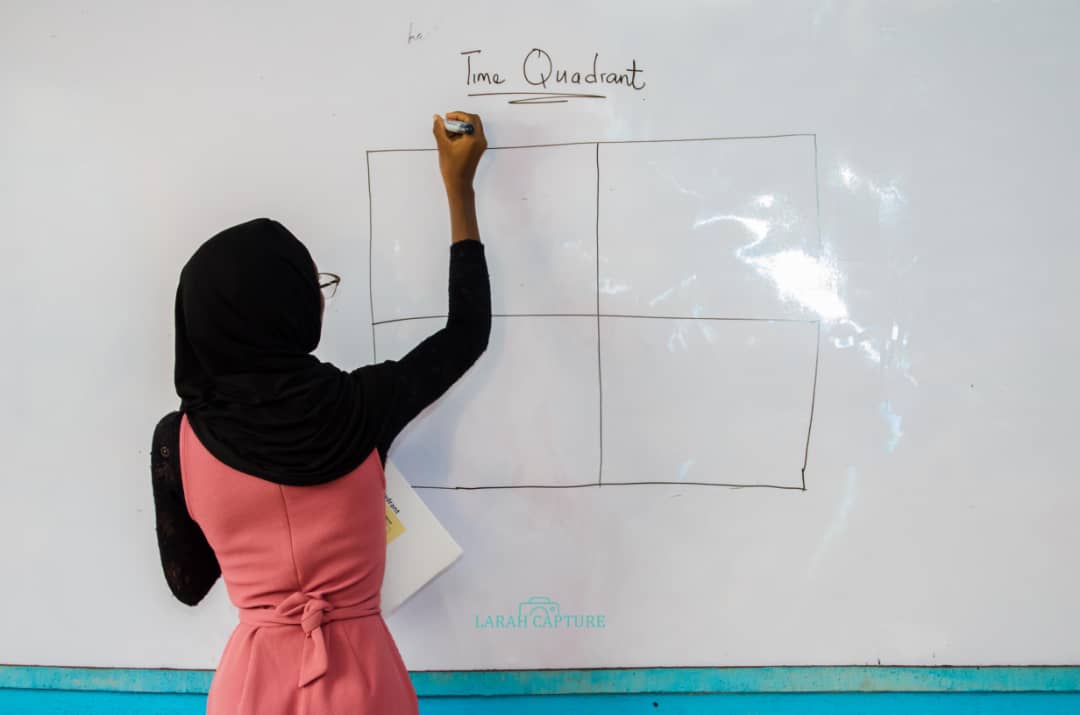 Time Quadrant
LARAH CAPTURE